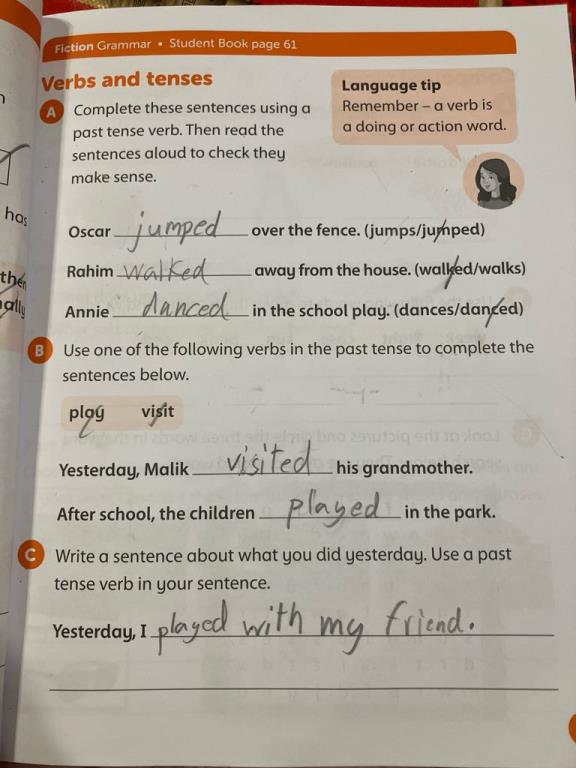 Fiction Grammar • Student Book page 61
Verbs and tenses
A Complete these sentences using a
past tense verb. Then read the
sentences aloud to check they
make sense.
Language tip
Remember – a verb is
a doing or action word.
Oscar jumped over the fence. (jumps/jumped)
Rahim walked away from the house. (walked/walks)
Annie danced in the school play. (dances/danced)
B Use one of the following verbs in the past tense to complete the
sentences below.
play visit
Yesterday, Malik visited his grandmother.
After school, the children played in the park.
C Write a sentence about what you did yesterday. Use a past
tense verb in your sentence.
Yesterday, I played with my friend.
has